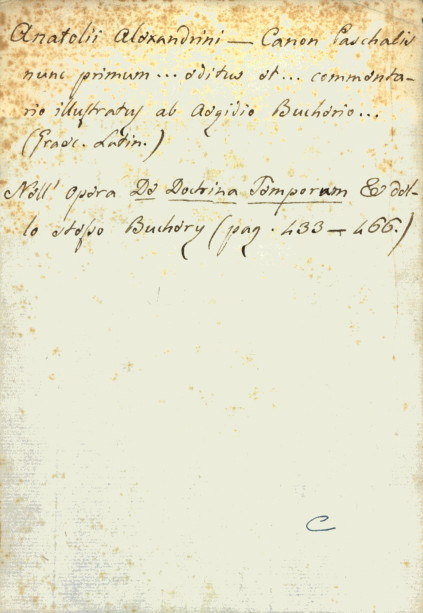 Anatolii Alexandrini — Canon Paschalis
nunc primum ... editus et ... commenta-
rio illustratus ab Aegidio Bucherio ...
(Graec. Latin.)
Nell' opera De Doctrina Temporum & del-
lo stesso Buchery (pag. 433 — 466.)
C